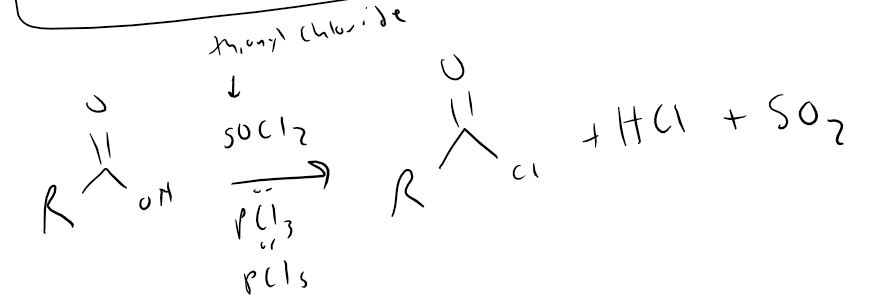 thionyl chloride
↓
O
SOCl2
R OH
or
PCl3
or
PCl5
O
R Cl + HCl + SO2